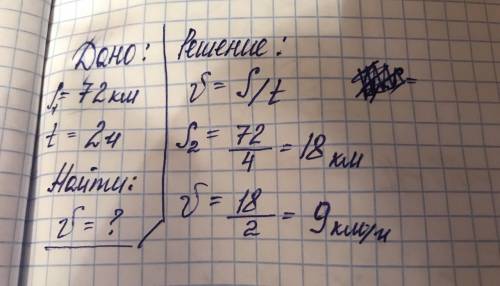 Дано:
S₁ = 72 км
t = 2 ч
Найти:
V = ?
Решение:
V = S/t
S₂ = 72/4 = 18 км
V = 18/2 = 9 км/ч